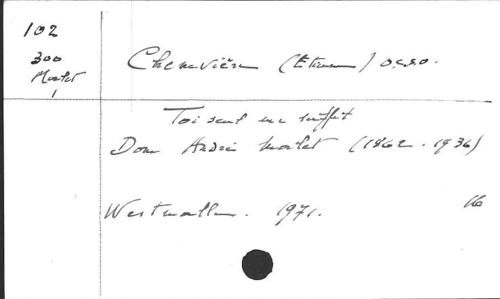 102
300
Morlet
1
Chenevière (Etienne) ocso.
Toi seul me suffit
Dom André Morlet (1862 - 1936)
Westmalle. 1971.
16